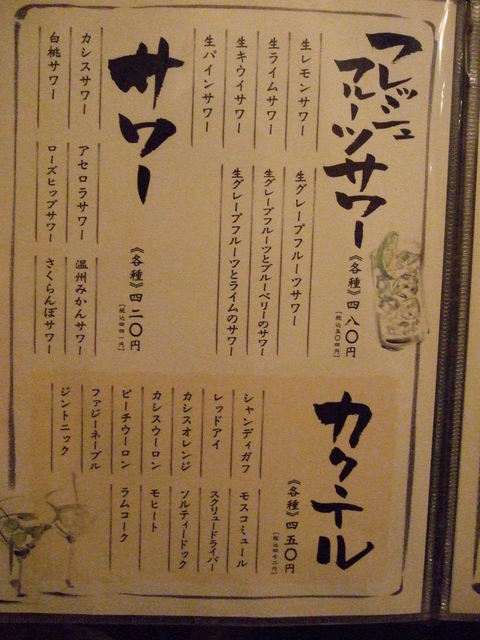 フレッシュ
フルーツサワー
《各種》四八〇円
[税込五〇四円]
生レモンサワー
生ライムサワー
生キウイサワー
生パインサワー
生グレープフルーツサワー
生グレープフルーツとブルーベリーのサワー
生グレープフルーツとライムのサワー
サワー
《各種》四二〇円
[税込四四一円]
カシスサワー
白桃サワー
アセロラサワー
ローズヒップサワー
温州みかんサワー
さくらんぼサワー
カクテル
《各種》四五〇円
[税込四七二円]
シャンディガフ
レッドアイ
カシスオレンジ
カシスウーロン
ピーチウーロン
ファジーネーブル
ジントニック
モスコミュール
スクリュードライバー
ソルティードック
モヒート
ラムコーク